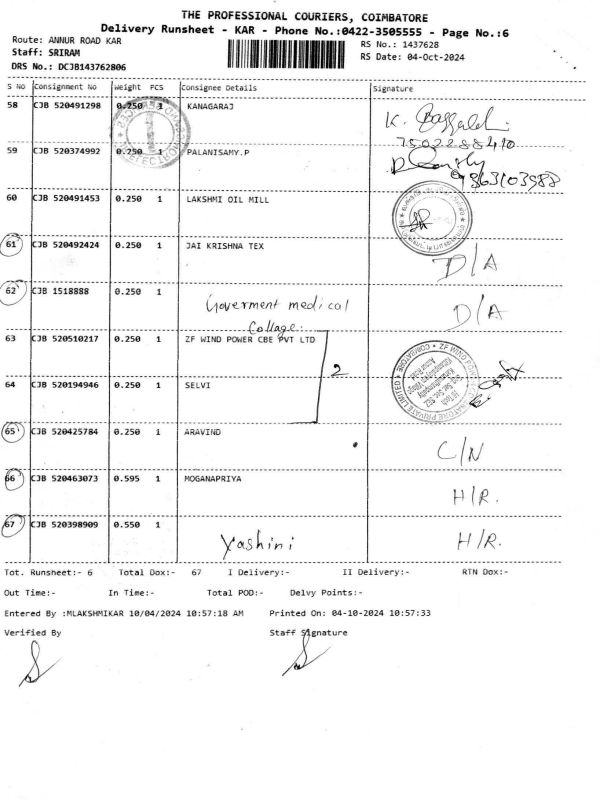 THE PROFESSIONAL COURIERS, COIMBATORE
Delivery Runsheet - KAR - Phone No.:0422-3505555 - Page No.:6
Route: ANNUR ROAD KAR
RS No.: 1437628
Staff: SRIRAM
RS Date: 04-Oct-2024
DRS No.: DCJB143762806
S No Consignment No Weight PCS Consignee Details Signature
58 CJB 520491298 0.250 1 KANAGARAJ
7502288410
59 CJB 520374992 0.250 1 PALANISAMY.P
60 CJB 520491453 0.250 1 LAKSHMI OIL MILL
61 CJB 520492424 0.250 1 JAI KRISHNA TEX D/A
62 CJB 1518888 0.250 1 Goverment medical Collage: D/A
63 CJB 520510217 0.250 1 ZF WIND POWER CBE PVT LTD
2
64 CJB 520194946 0.250 1 SELVI
65 CJB 520425784 0.250 1 ARAVIND C/N
66 CJB 520463073 0.595 1 MOGANAPRIYA H/R.
67 CJB 520398909 0.550 1 Yashini H/R.
Tot. Runsheet:- 6 Total Dox:- 67 I Delivery:- II Delivery:- RTN Dox:-
Out Time:- In Time:- Total POD:- Delvy Points:-
Entered By :MLAKSHMIKAR 10/04/2024 10:57:18 AM Printed On: 04-10-2024 10:57:33
Verified By Staff Signature